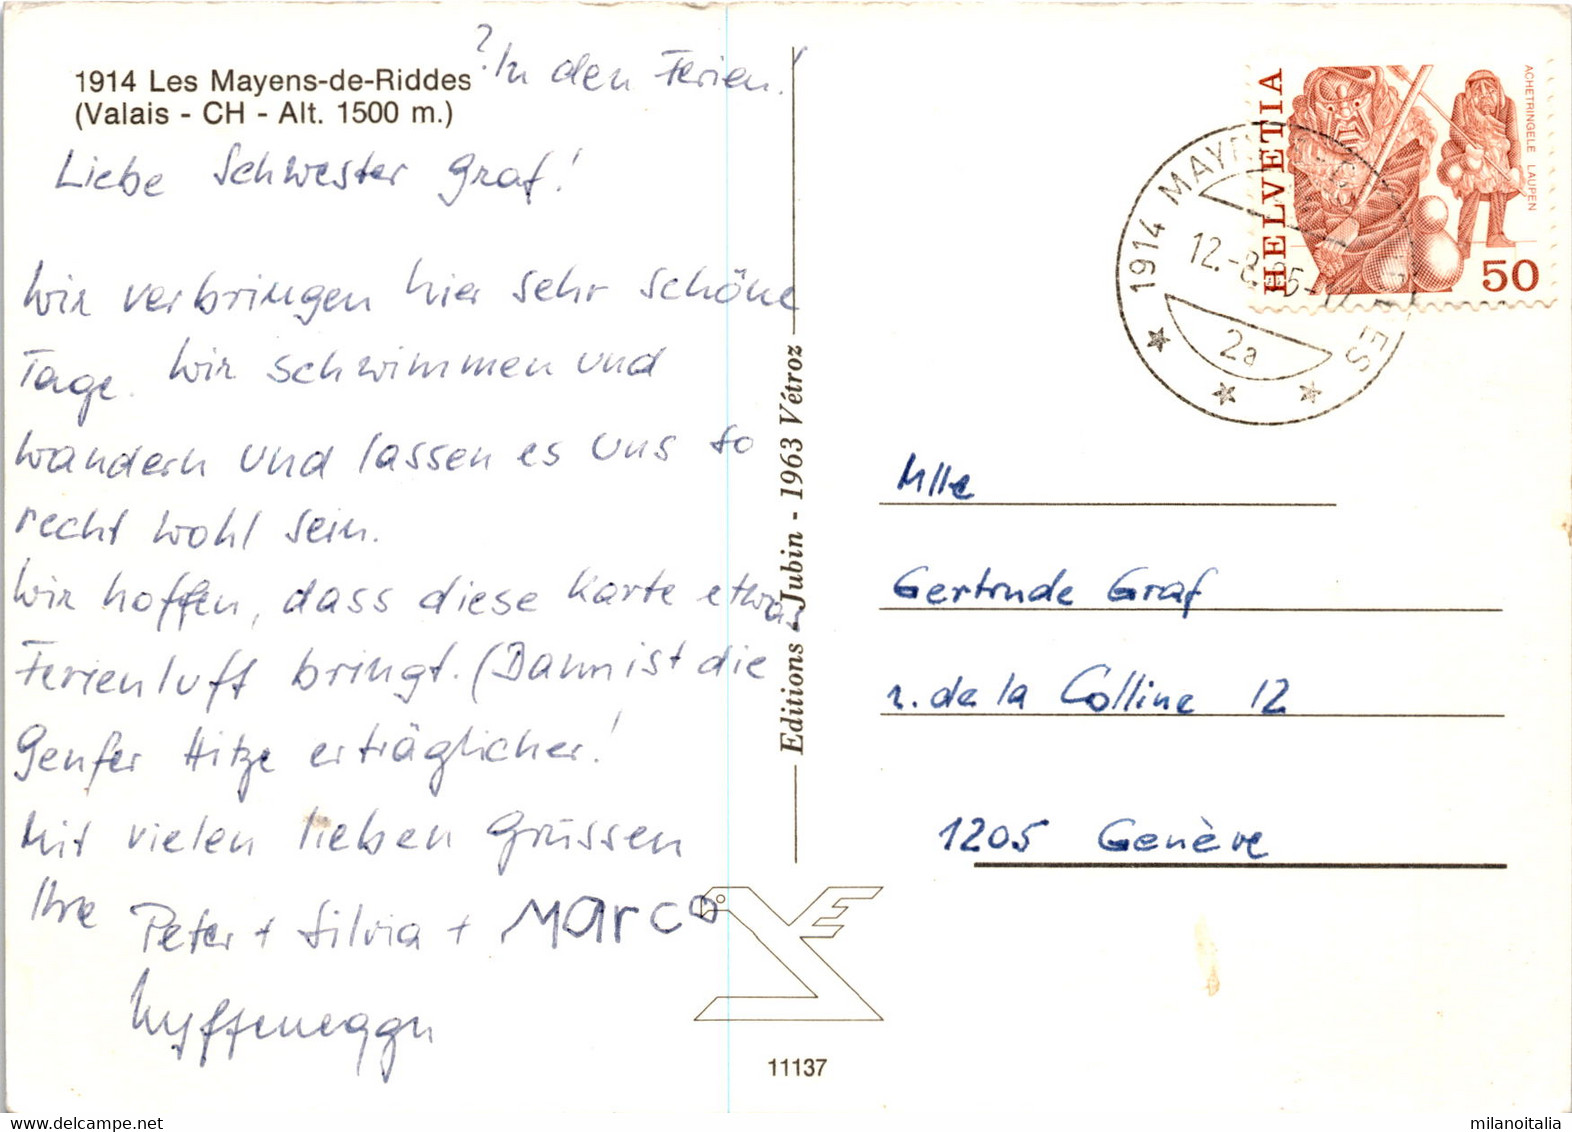 1914 Les Mayens-de-Riddes
(Valais - CH - Alt. 1500 m.)
? In den Ferien!
Liebe Schwester Graf!
Wir verbringen hier sehr schöne
Tage. Wir schwimmen und
wandern und lassen es uns so
recht wohl sein.
Wir hoffen, dass diese Karte etwas
Ferienluft bringt. (Dann ist die
Genfer Hitze erträglicher!
Mit vielen lieben Grüssen
Ihre Peter + Silvia + Marco
Nyffenegger
Editions - Jubin - 1963 Vétroz
11137
HELVETIA
ACHETRINGELE LAUPEN
50
1914 MAY
ES
12.-8.85-17
2a
Mlle
Gertrude Graf
r. de la Colline 12
1205 Genève
milanoitalia